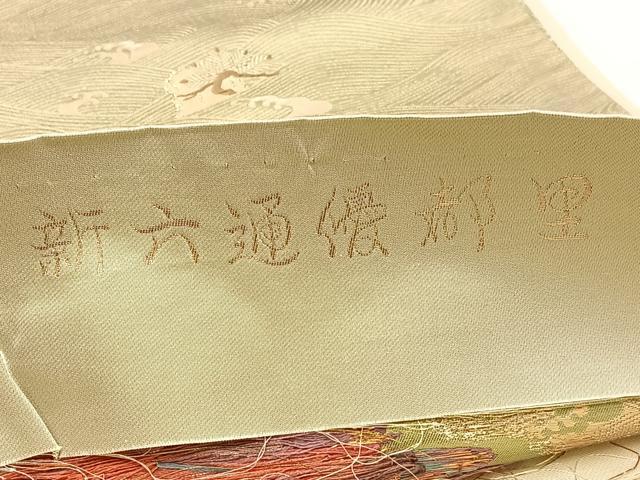 新六通儀都里